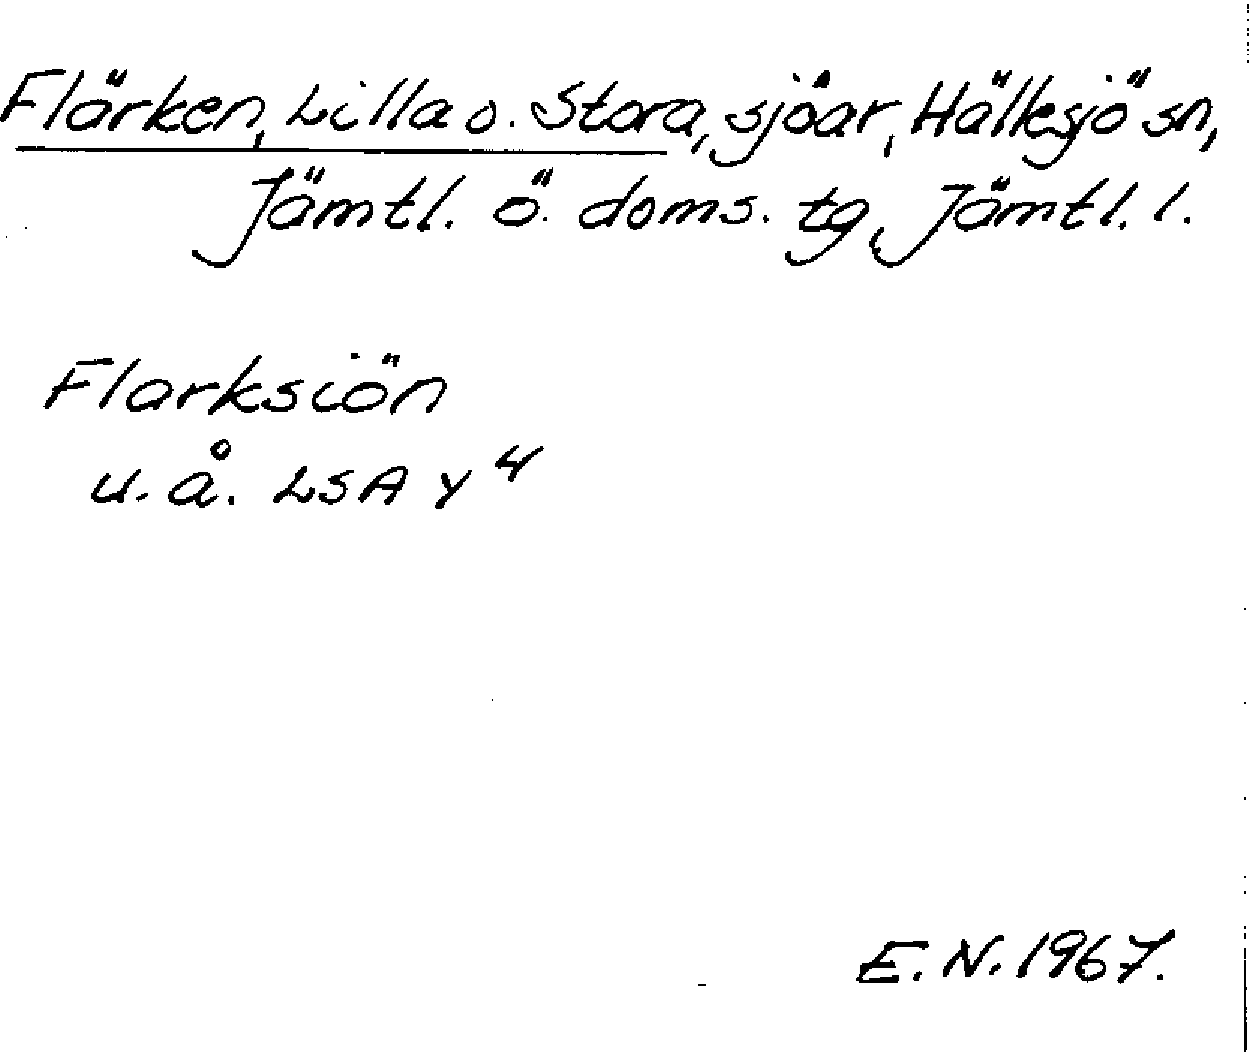 Flärken, Lilla o. Stora, sjöar, Hällesjö sn,
Jämtl. ö. doms. tg, Jämtl. l.
Flarksiön
u. å. LSA Y 4
E. N. 1967.